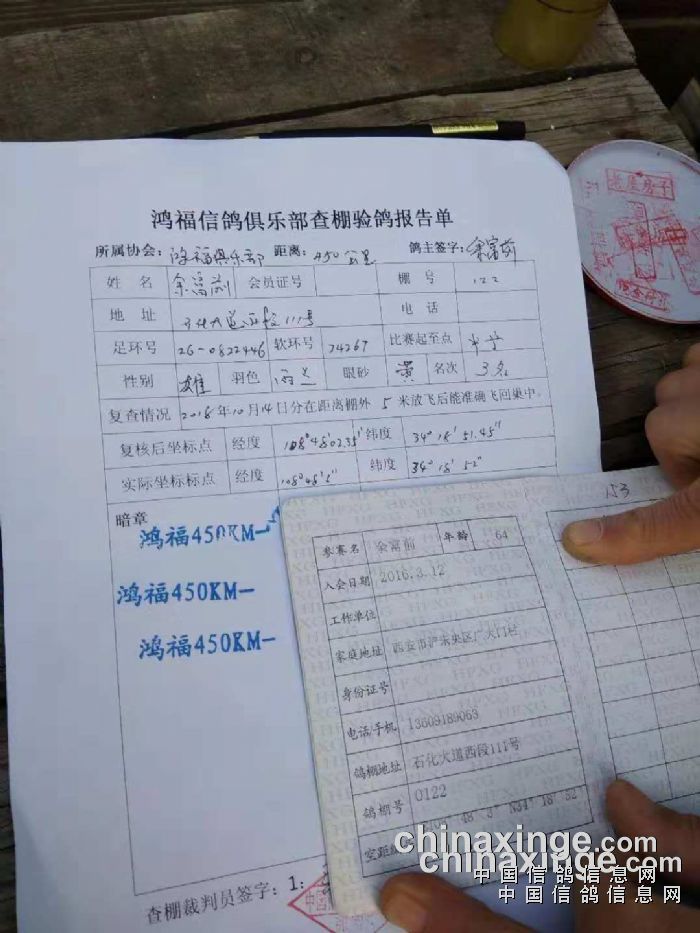 鸿福信鸽俱乐部查棚验鸽报告单
所属协会：鸿福俱乐部 距离：450公里 鸽主签字：余富前
姓 名 余富前 会员证号 棚 号 122
地 址 石化大道西段111号 电 话
足环号 26-0822446 软环号 74267 比赛起至点
性别 雄 羽色 雨点 眼砂 黄 名次 3名
复查情况 2018年10月14日分在距离棚外 5 米放飞后能准确飞回巢中。
复核后坐标点 经度 108°48'02.35" 纬度 34°18'51.45"
实际坐标标点 经度 108°48'3" 纬度 34°18'52"
暗章
鸿福450KM-
鸿福450KM-
鸿福450KM-
查棚裁判员签字：1：
153
参赛名 余富前 年龄 64
入会日期 2016.3.12
工作单位
家庭地址 西安市浐未央区广大门村
身份证号
电话/手机 13609189063
鸽棚地址 石化大道西段111号
鸽棚号 0122
空距 48' 3" N34° 18' 52"
HFXG
chinaxinge.com
chinaxinge.com
中国信鸽信息网
中国信鸽信息网